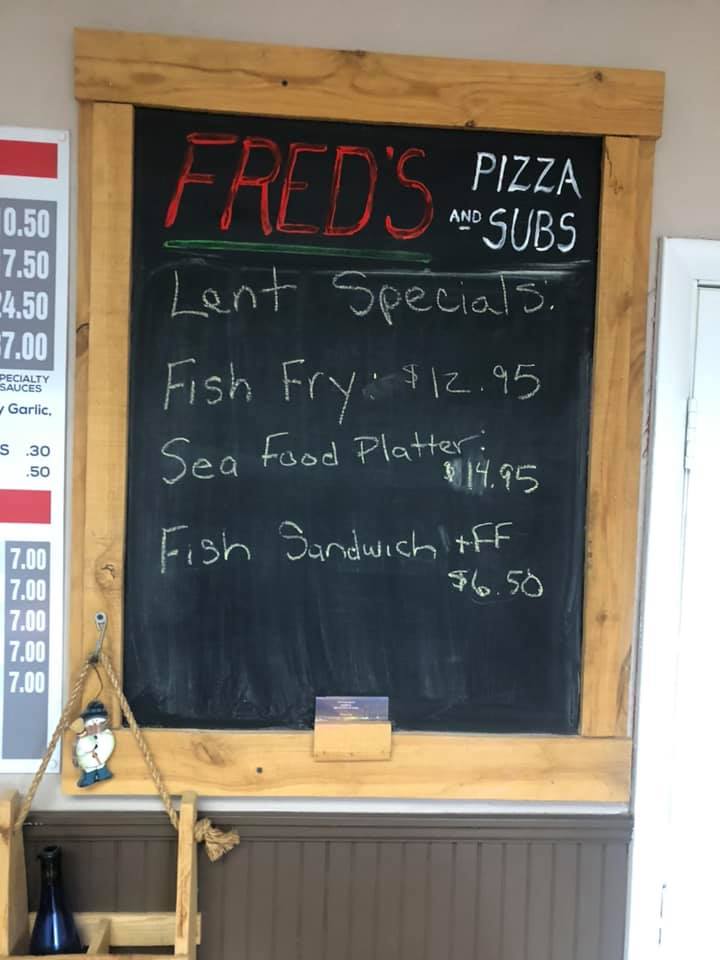 FRED'S PIZZA
AND SUBS
Lent Specials:
Fish Fry: $12.95
Sea Food Platter:
$14.95
Fish Sandwich +FF
$6.50
0.50
7.50
24.50
37.00
PECIALTY
SAUCES
y Garlic,
S .30
.50
7.00
7.00
7.00
7.00
7.00